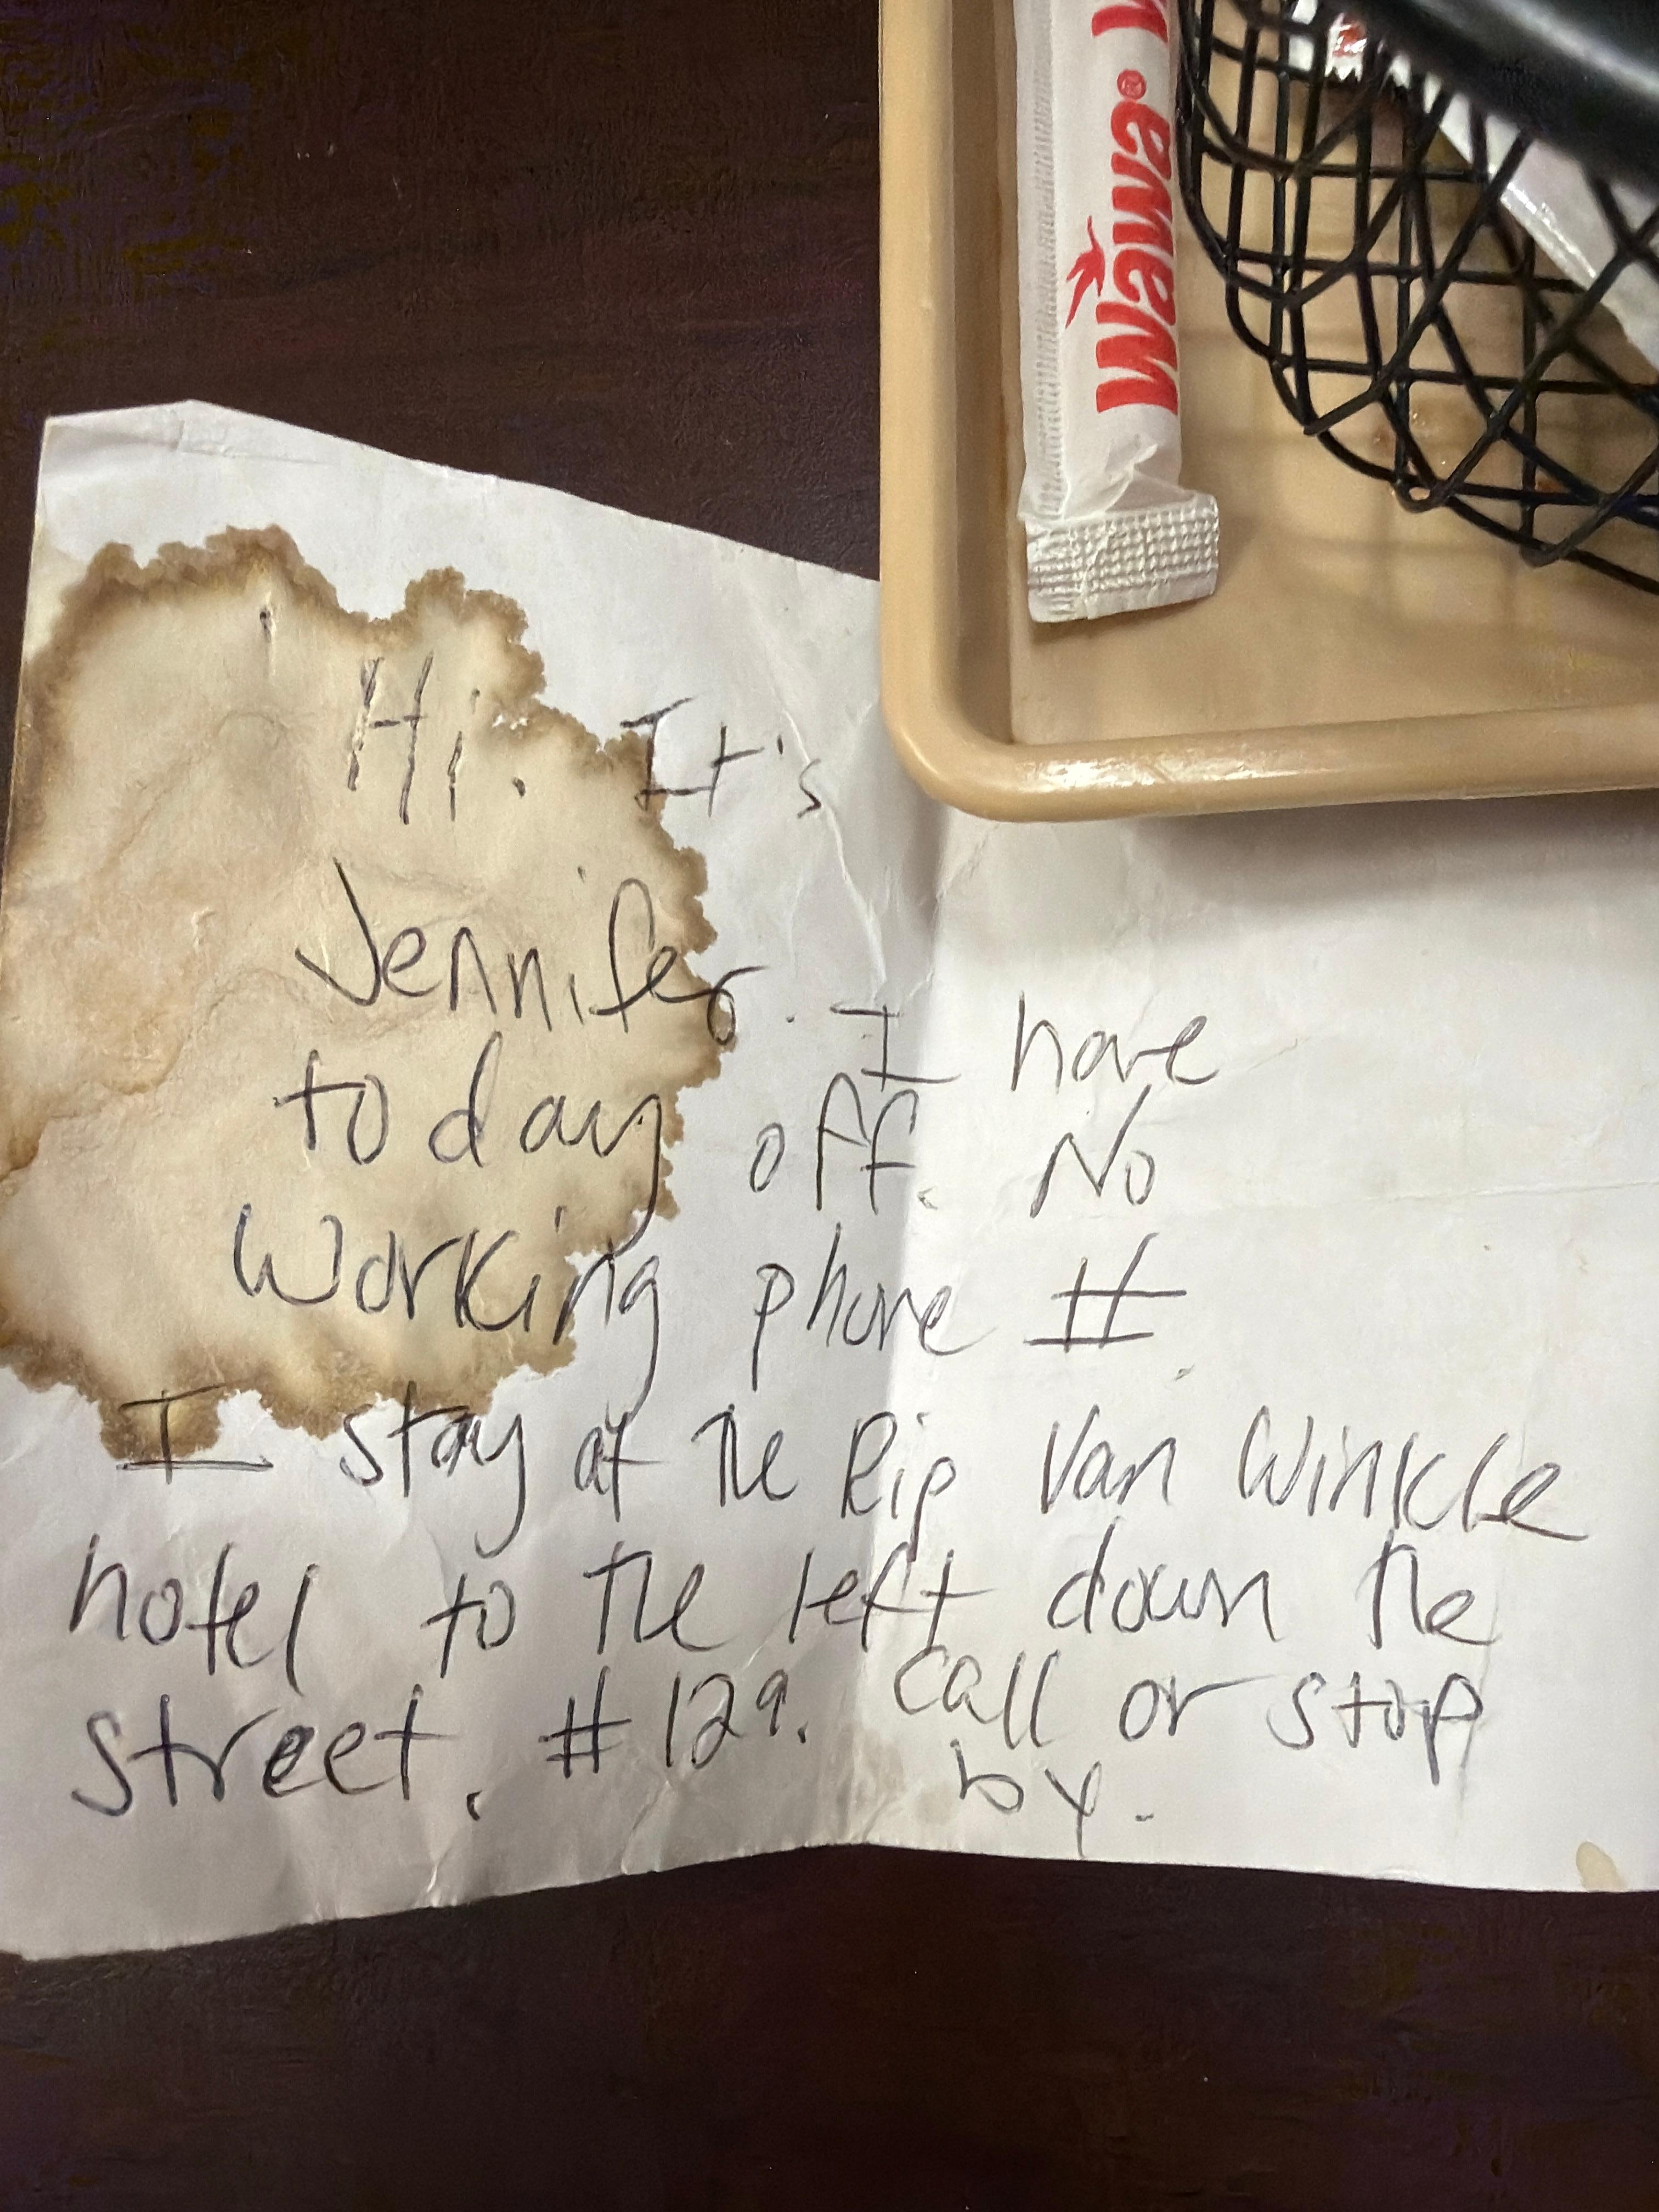 Wawa® W
Hi. It's
Jennifer. I have
today off. No
working phone #.
I stay at the Rip Van Winkle
hotel to the left down the
street. #129. call or stop
by.